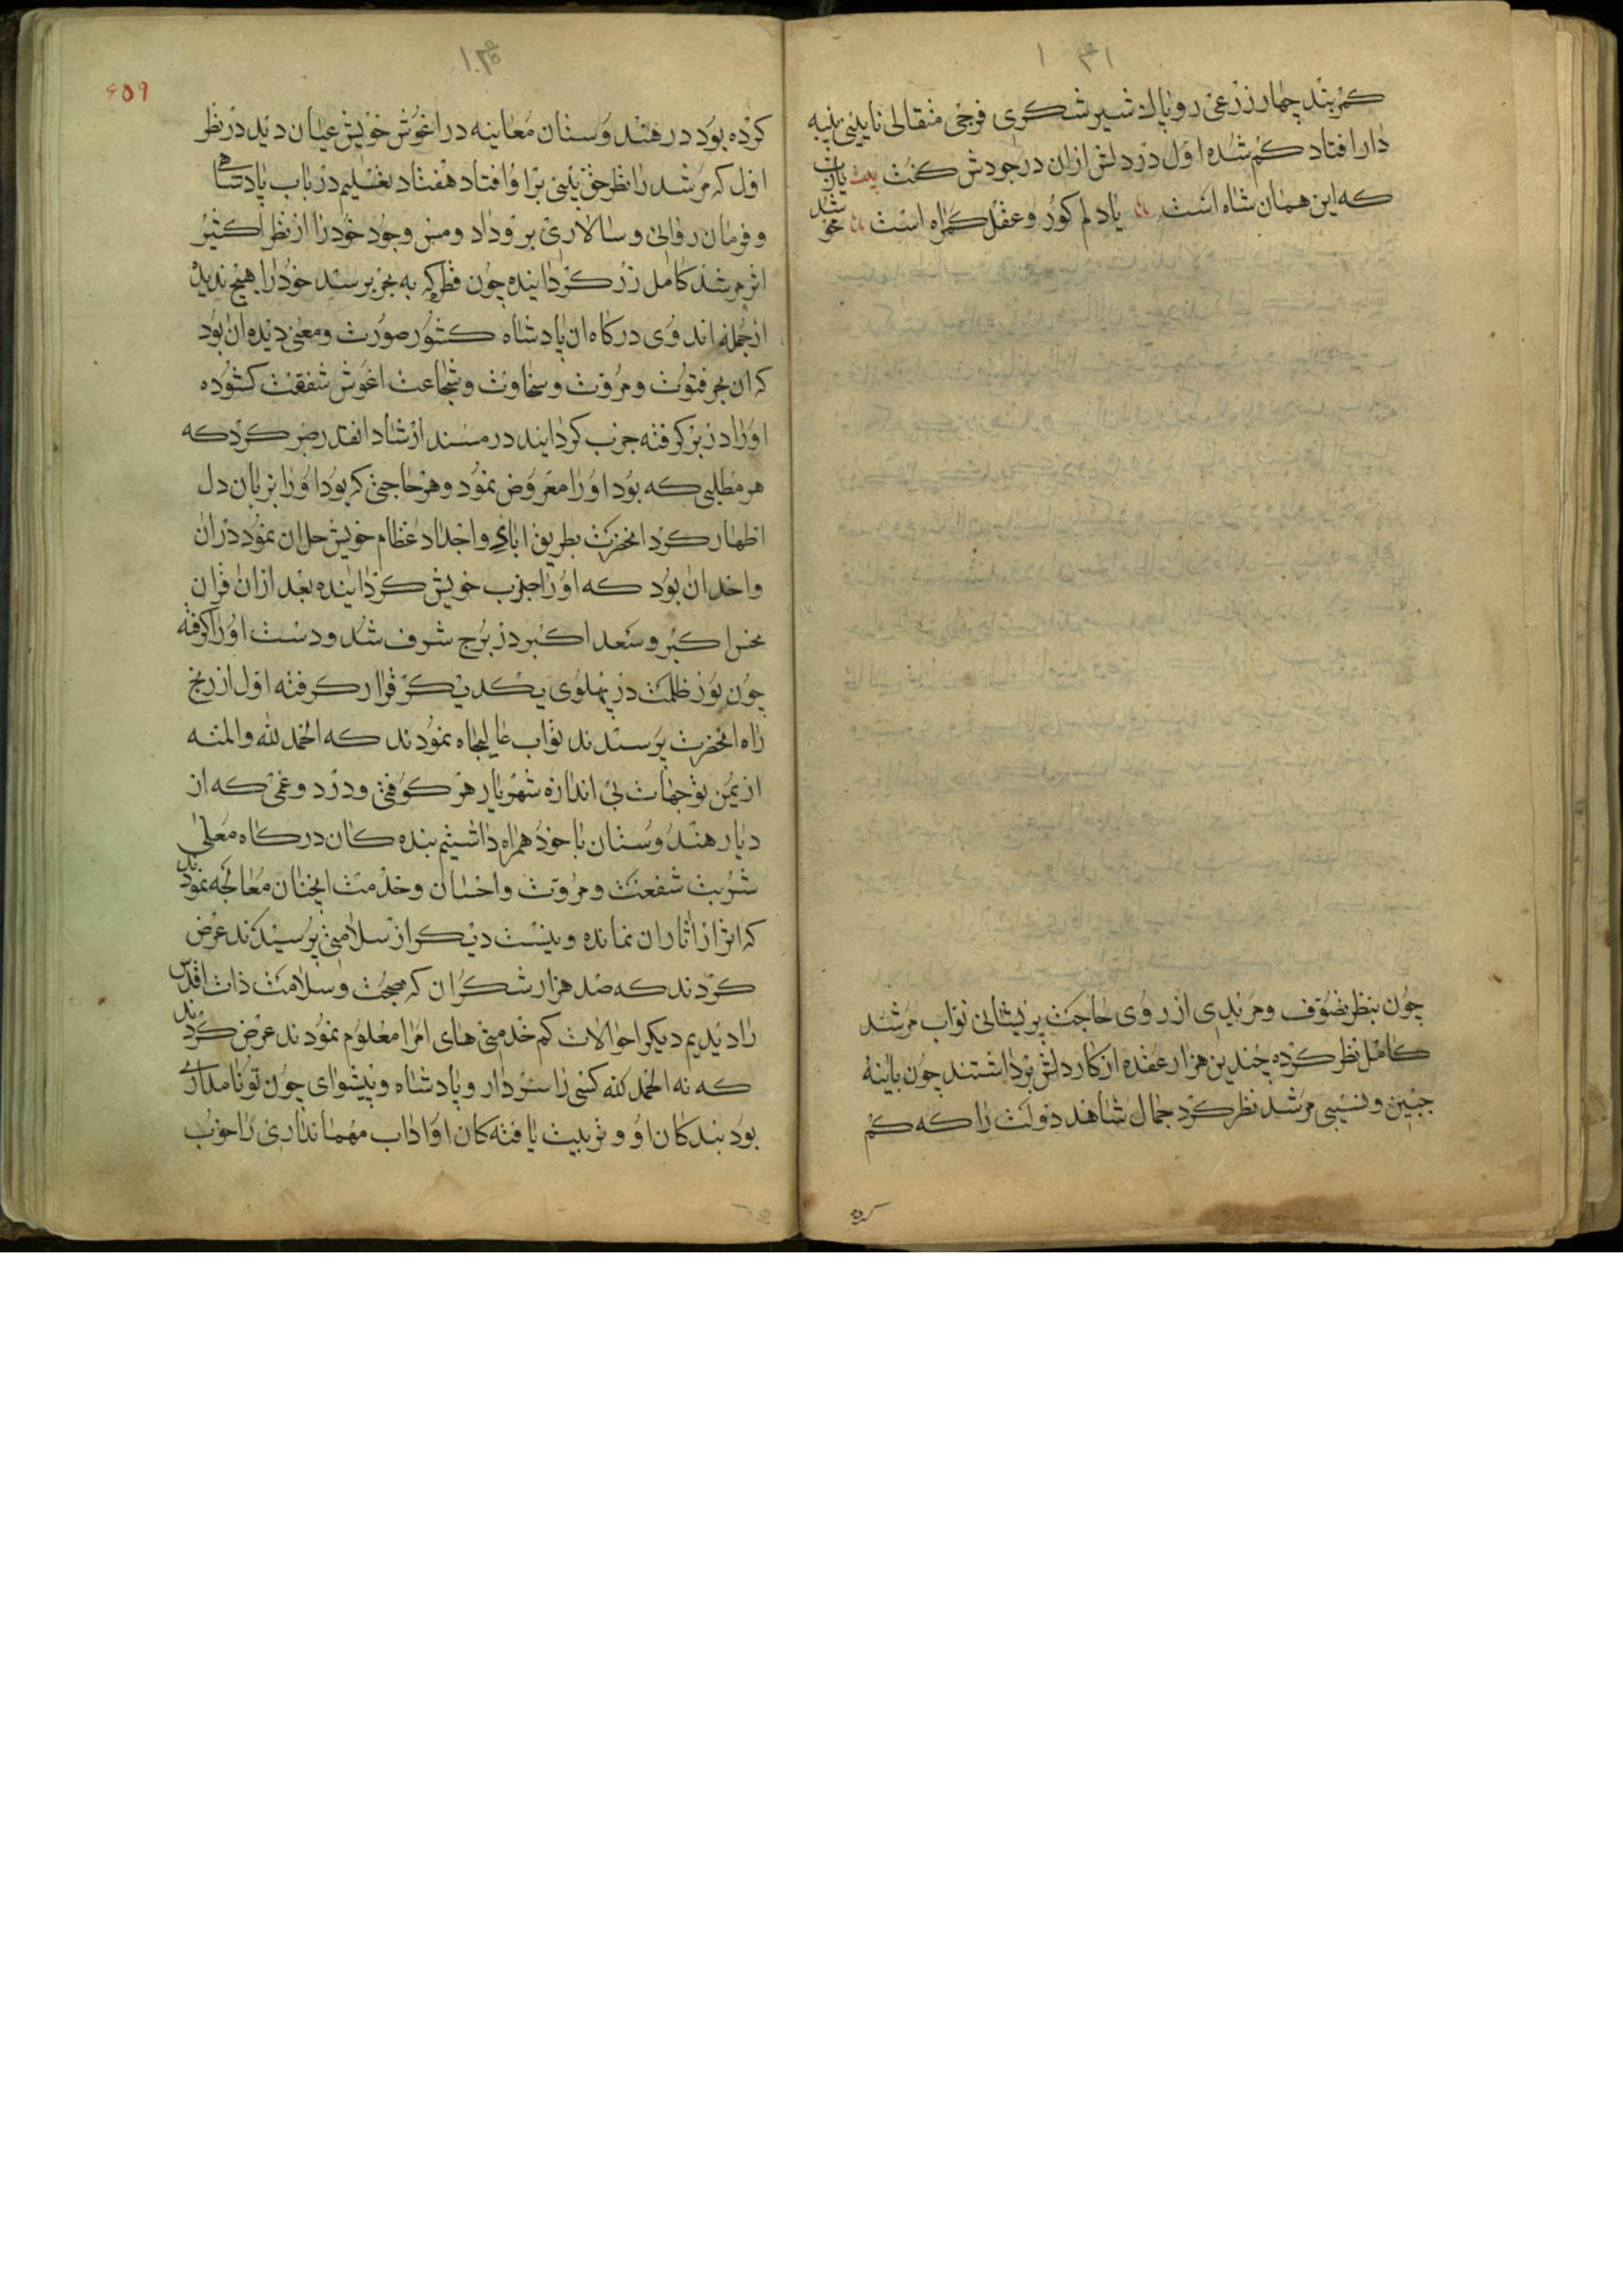 کمربند چهار زرعی روپاک شیر شکری فرجی مثقالی نایینی پنبه
دار افتاد کم شده اول در دلش ازان در جودش کفت بیت یارب
که این همان شاه است یا دلم کور و عقل کمراه است
چون بنظر تصوف و مریدی از روی حاجت پریشانی نواب مرشد
کامل نظر کرده چندین هزار عقده از کار دلش برداشتند چون باینه
جبین و نسیبی مرشد نظر کرد جمال شاهد دولت را که کم
کرده بود در هند وستان معاینه در اغوش خویش عیان دید در نظر
اول که مرشد را نظر حق بینی برا و افتاد هفتاد بغسلیم در باب پادشاهی
و فرمان روائی و سالاری برو داد و مس وجود خود را از نظر اکثیر
اثر مرشد کامل زر کردانیده چون قطره که به بحر برسد خود را هیچ ندید
ازجمله اند وی درکاه ان پادشاه کشور صورت ومعنی دیده ان بود
که ان بحر فتوت و مروت و سخاوت و شجاعت اغوش شفقت کشوده
او را در بر کرفته جزب کردانید در مسند ارشاد انقدر صبر کرد که
هر مطلبی که بود او را معروض نمود و هر حاجتی که بود او را بزبان دل
اظهار کرد انحضرت بطریق ابای واجداد عظام خویش حل ان نمود دران
واخد ان بود که او را جزب خویش کردانیده بعد ازان قران
نحس اکبر و سعد اکبر در برج شرف شد و دست او را کرفته
چون نور ظلمت در پهلوی یکدیکر قرار کرفته اول از رنج
راه انحضرت پرسیدند نواب عالیجاه نمودند که الحمد لله والمنه
از یمن توجهات بی اندازه شهریار هر کوفتی و درد و غمی که از
دیار هند وستان با خود همراه داشتیم بنده کان درکاه معلی
شربت شفعت و مروت و احسان و خدمت انچنان معالجه نمودند
که اثر از اثار ان نمانده و نیست دیکر از سلامتی پرسیدند عرض
کردند که صد هزار شکر ان که صحت و سلامت ذات اقدس
را دیدیم دیکر احوالات کم خدمتی های امرا معلوم نمودند عرض کردند
که نه الحمد لله کسی را سردار و پادشاه و پیشوای چون تو نامداری
بود بند کان او و تربیت یافته کان او اداب مهمانداری را خوب